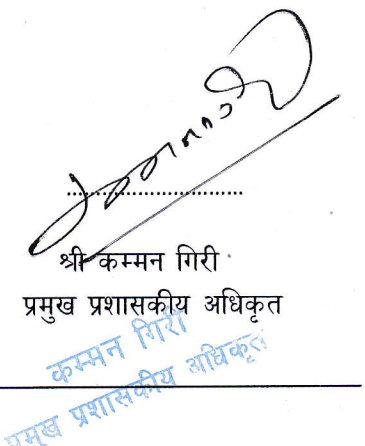 ..............................
श्री कम्मन गिरी
प्रमुख प्रशासकीय अधिकृत
कम्मन गिरी
प्रमुख प्रशासकीय अधिकृत